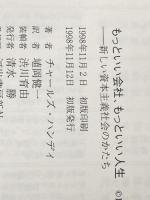 もっといい会社、もっといい人生
——新しい資本主義社会のかたち
1998年11月2日 初版印刷
1998年11月12日 初版発行
著者 チャールズ・ハンディ
訳者 埴岡健一
装幀者 渋川育由
発行者 清水 勝